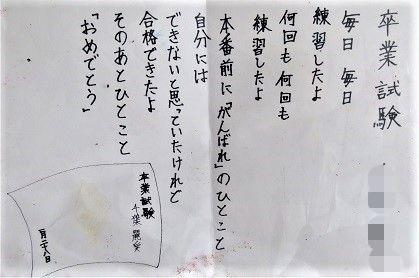 卒業試験
毎日 毎日
練習したよ
何回も 何回も
練習したよ
本番前に「がんばれ」のひとこと
自分には
できないと思っていたけれど
合格できたよ
そのあとひとこと
「おめでとう」
卒業試験